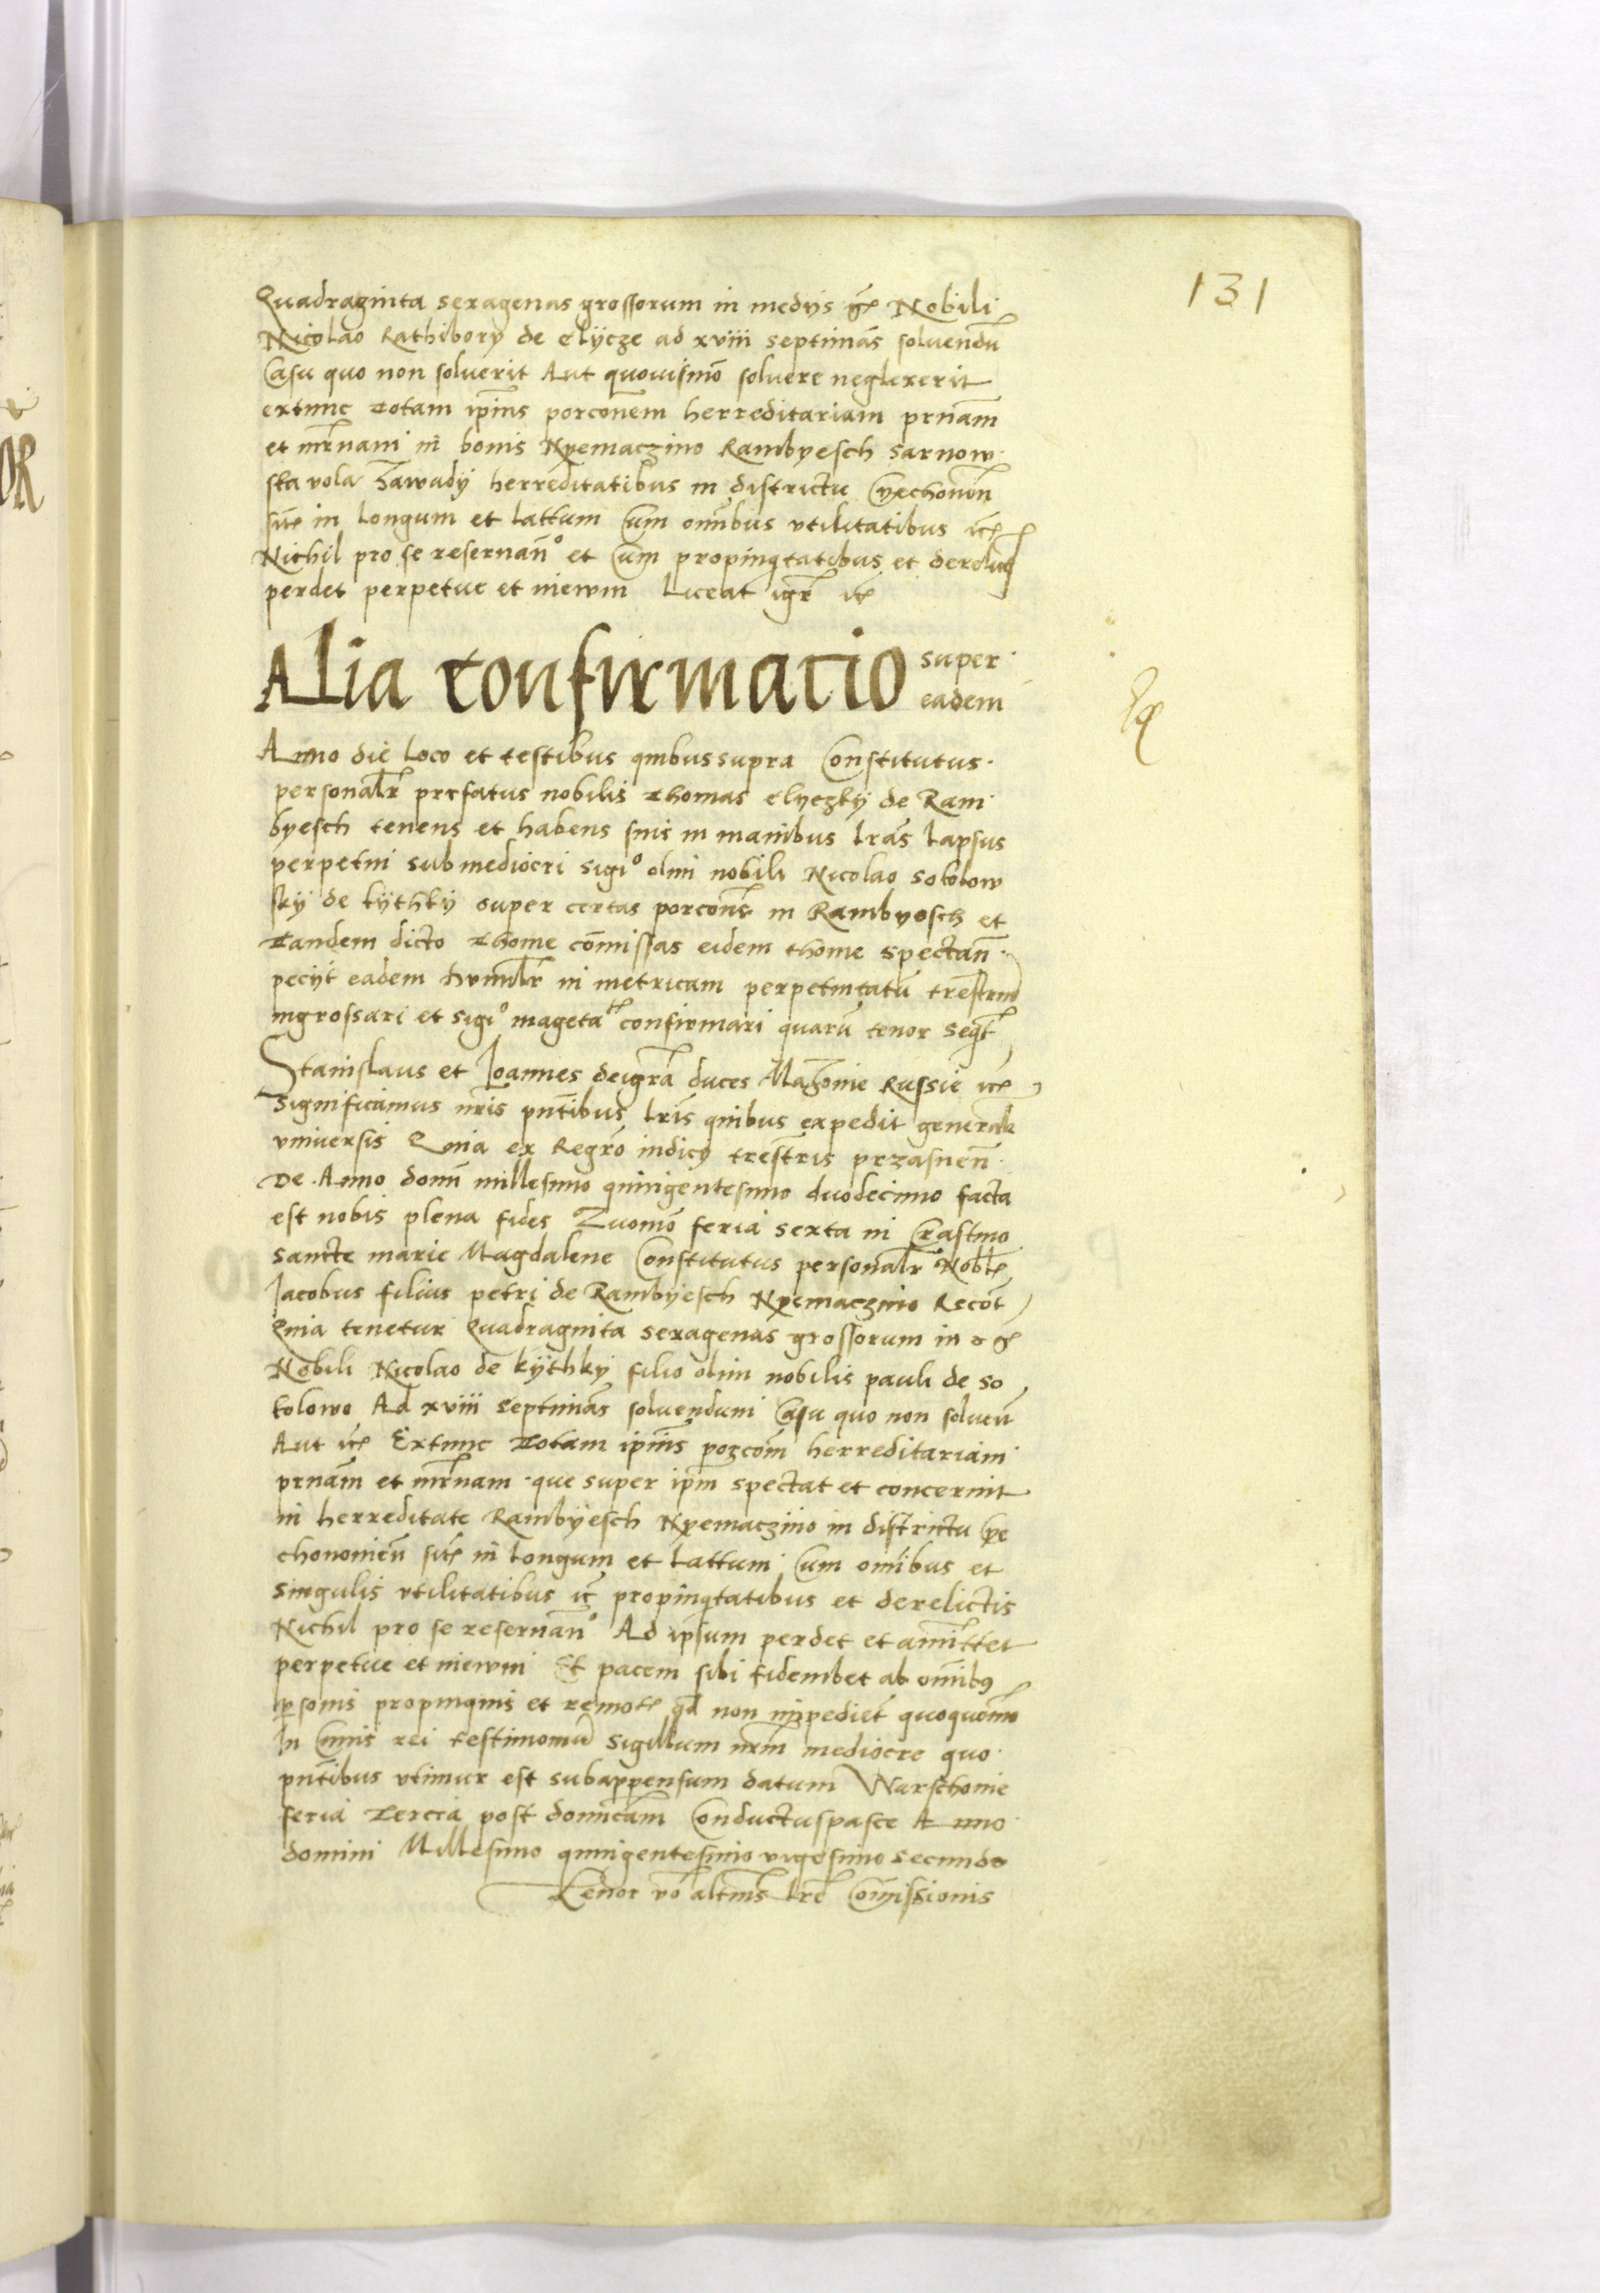 131
Quadraginta sexagenas grossorum in medys gͬ Nobili
Nicolao Rathibory de elycze ad xviii septimãs soluendũ
Casu quo non soluerit Aut quouismõ soluere neglexerit
extunc totam ip̃ius porcõnem herreditariam pr̃nam
et mr̃nam in bonis Nyemaczino Rambyesch sarnow
ska vola Zawady herreditatibus in districtu Cyechonieñ
sitͬ in longum et lattum Cum omĩbus vtilitatibus ic̃
Nichil pro se reseruañ° et Cum propinq̃tatibus et derelict̃
perdet perpetue et niewin Liceat igr̃ ic̃
Alia confirmatio super
eadem
Anno die loco et testibus quibus supra Constitutus
personalr̃ prefatus nobilis thomas elyczky de Ram
byesch tenens et habens suis in manibus lrãs lapsus
perpetui sub mediocri sigi° olim nobili Nicolao sokolow
sky de kythky super certas porcõns in Rambyesch et
tandem dicto thome cõmissas eidem thome spectañ
pecyt eadem humilr̃ in metricam perpetuitatũ trestrium
ingrossari et sigi° magetali confirmari quarũ tenor seqt̃
Stanislaus et Joannes deigrã duces Mazouie Russie ic̃
Significamus nr̃is pñtibus lrĩs quibus expedit generale
vniuersis Quia ex Regrõ iudicy trestris przasneñ
De Anno domĩ millesimo quingentesimo duodecimo facta
est nobis plena fides Quomõ feria sexta in Crastino
sancte marie Magdalene Constitutus personalr̃ Nobl̃
Jacobus filius petri de Rambyesch Nyemaczino Recot̃
Quia tenetur Quadraginta sexagenas grossorum in ͬ gͬ
Nobili Nicolao de kythky filio olim nobilis pauli de so
kolowo Ad xviii septimãs soluendum Casu quo non soluerit
Aut ic̃ Extunc totam ip̃ius porcom̃ herreditariam
pr̃nam et mr̃nam que super ipm̃ spectat et concernit
in herreditate Rambyesch Nyemaczino in districtu Cye
chonouieñ sitͬ in longum et lattum Cum omĩbus et
singulis vtilitatibus ic̃ propinq̃tatibus et derelictis
Nichil pro se reseruañ° Ad ipsum perdet et amittet
perpetue et niewin Et pacem sibi fidembet ab omĩbus
personis propinquis et remotͬ qd̃ non impediet quoquomõ
In Cuius rei testimoniũ sigillum nr̃m mediocre quo
pñtibus vtimur est subappensum datum Warschouie
feria tercia post domicãm Conductuspasce Anno
domini Millesimo quingentesimo vigesimo secundo
Tenor vo alterius lrẽ Comissionis